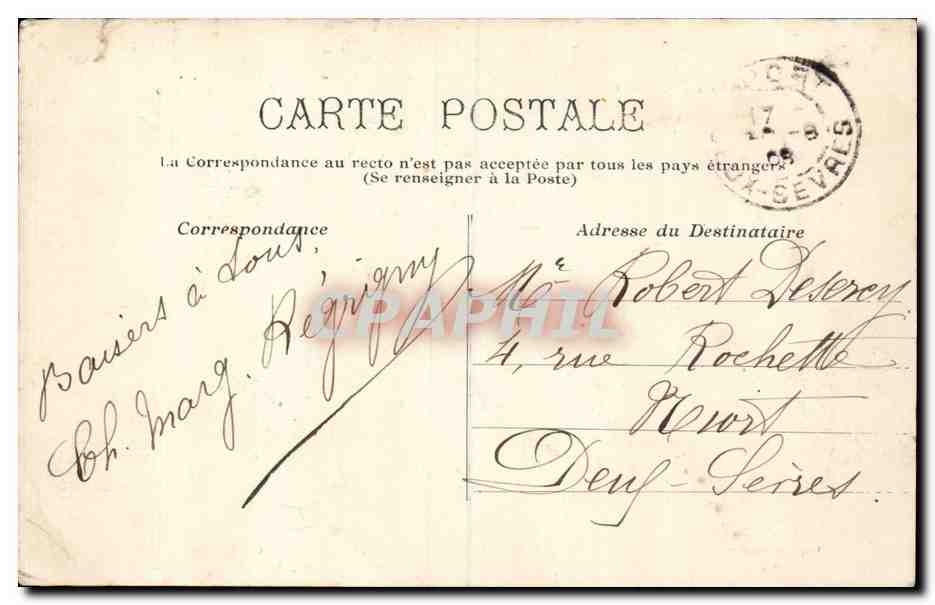 CARTE POSTALE
La Correspondance au recto n'est pas acceptée par tous les pays étrangers
(Se renseigner à la Poste)
Correspondance
Adresse du Destinataire
Baisers à tous,
Ch. Marg. Régrigny
Mr Robert
4, rue Rochette
Niort
Deux-Sèvres
17
-8
09
X-SEVRES
CPAPHIL